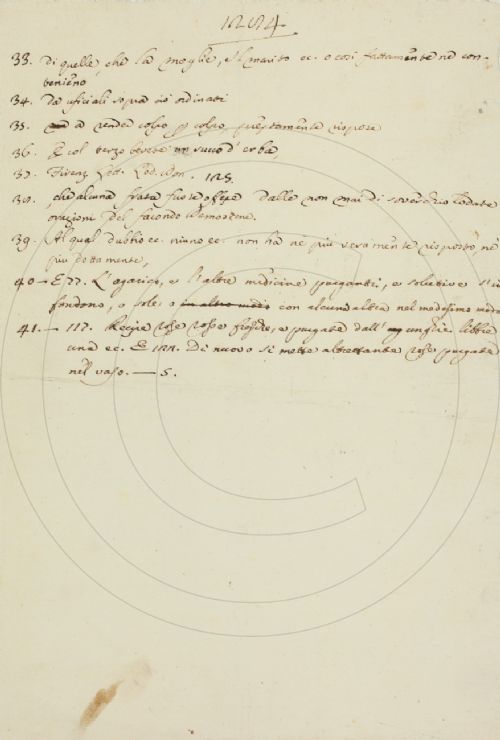 33. Di quelle, che la moglie, il marito ec. o così fattamente ne con-
tenieno
34. Da uficiali sopra ciò ordinati
35. a render colpo p colpo prestamente rispose
36. E col terzo bevete un succo d' erba,
37. Firenz. Lett. Lod. Don. 123.
38. che alcuna fiata fuste offese dalle non mai di soverchio lodate
orazioni del facondo Demostene.
39. Al qual dubbio ec. niuno ec. non ha nè più veramente risposto, nè
più dottamente,
40 — E 77. L' agarico, e l' altre medicine purganti, e solutive s' in
fondono, o sole, o in altro modo con alcun' altra nel medesimo modo
41. — 117. Recipe rose rosse fresche, e purgate dall' unghie libbre
una ec. E 124. Di nuovo si mette altrettante rose purgate
nel vaso. — 5.